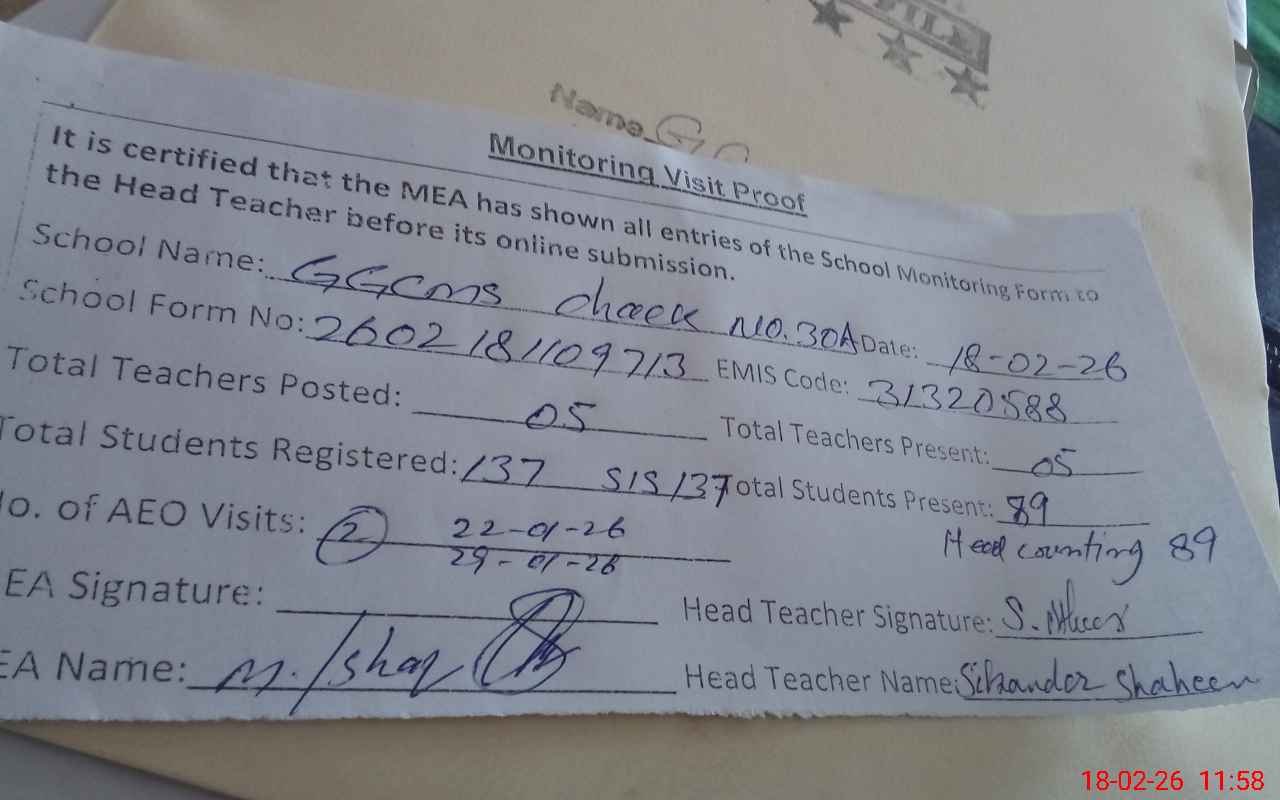 FILE
Name GG
Monitoring Visit Proof
It is certified that the MEA has shown all entries of the School Monitoring Form to
the Head Teacher before its online submission.
School Name: GGCMS chack NO.30A Date: 18-02-26
School Form No: 2602181109713 EMIS Code: 31320588
Total Teachers Posted: 05 Total Teachers Present: 05
Total Students Registered: 137 SIS 137 Total Students Present: 89
Head counting 89
No. of AEO Visits: 2 22-01-26
29-01-26
EA Signature: Head Teacher Signature:
EA Name: M. Ishaq Head Teacher Name: Sikander Shaheen
18-02-26 11:58